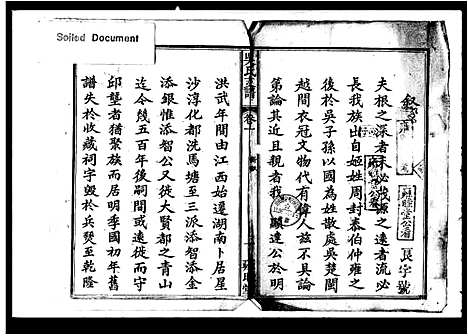 Soiled Document
敘
夫根之深者末必茂源之遠者流必
長我族出自姬姓周封泰伯仲雍之
後於吳子孫以國為姓散處吳楚閩
越間衣冠文物代有偉人茲不具論
第論其近且親者我
顯達公於明
洪武年間由江西始遷湖南卜居星
沙淳化都洗馬塘至三派添智添金
添銀惟添智公又從大賢都之青山
迄今幾五百年後嗣間或遠徙而守
邱壟者猶聚族而居明季國初年舊
譜失於收藏祠宇毀於兵燹至乾隆
吳氏支譜
卷一
良字號